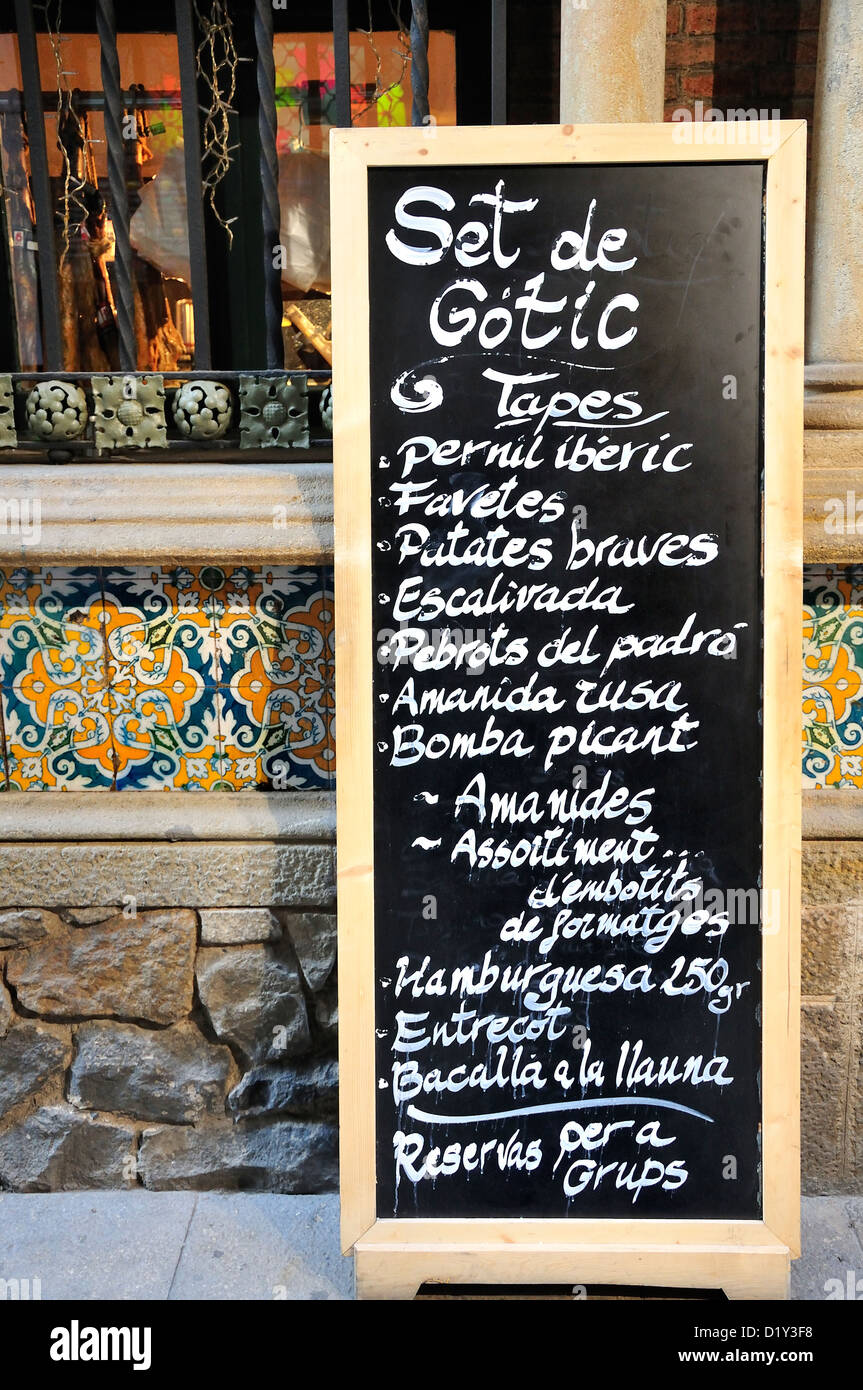 Set de
Gòtic
Tapes
· Pernil ibèric
· Favetes
· Patates braves
· Escalivada
· Pebrots del padró
· Amanida rusa
· Bomba picant
~ Amanides
~ Assortiment...
d'embotits
de formatges
· Hamburguesa 250gr
· Entrecot
· Bacallà a la llauna
Reservas per a
Grups
alamy
Image ID: D1Y3F8
www.alamy.com